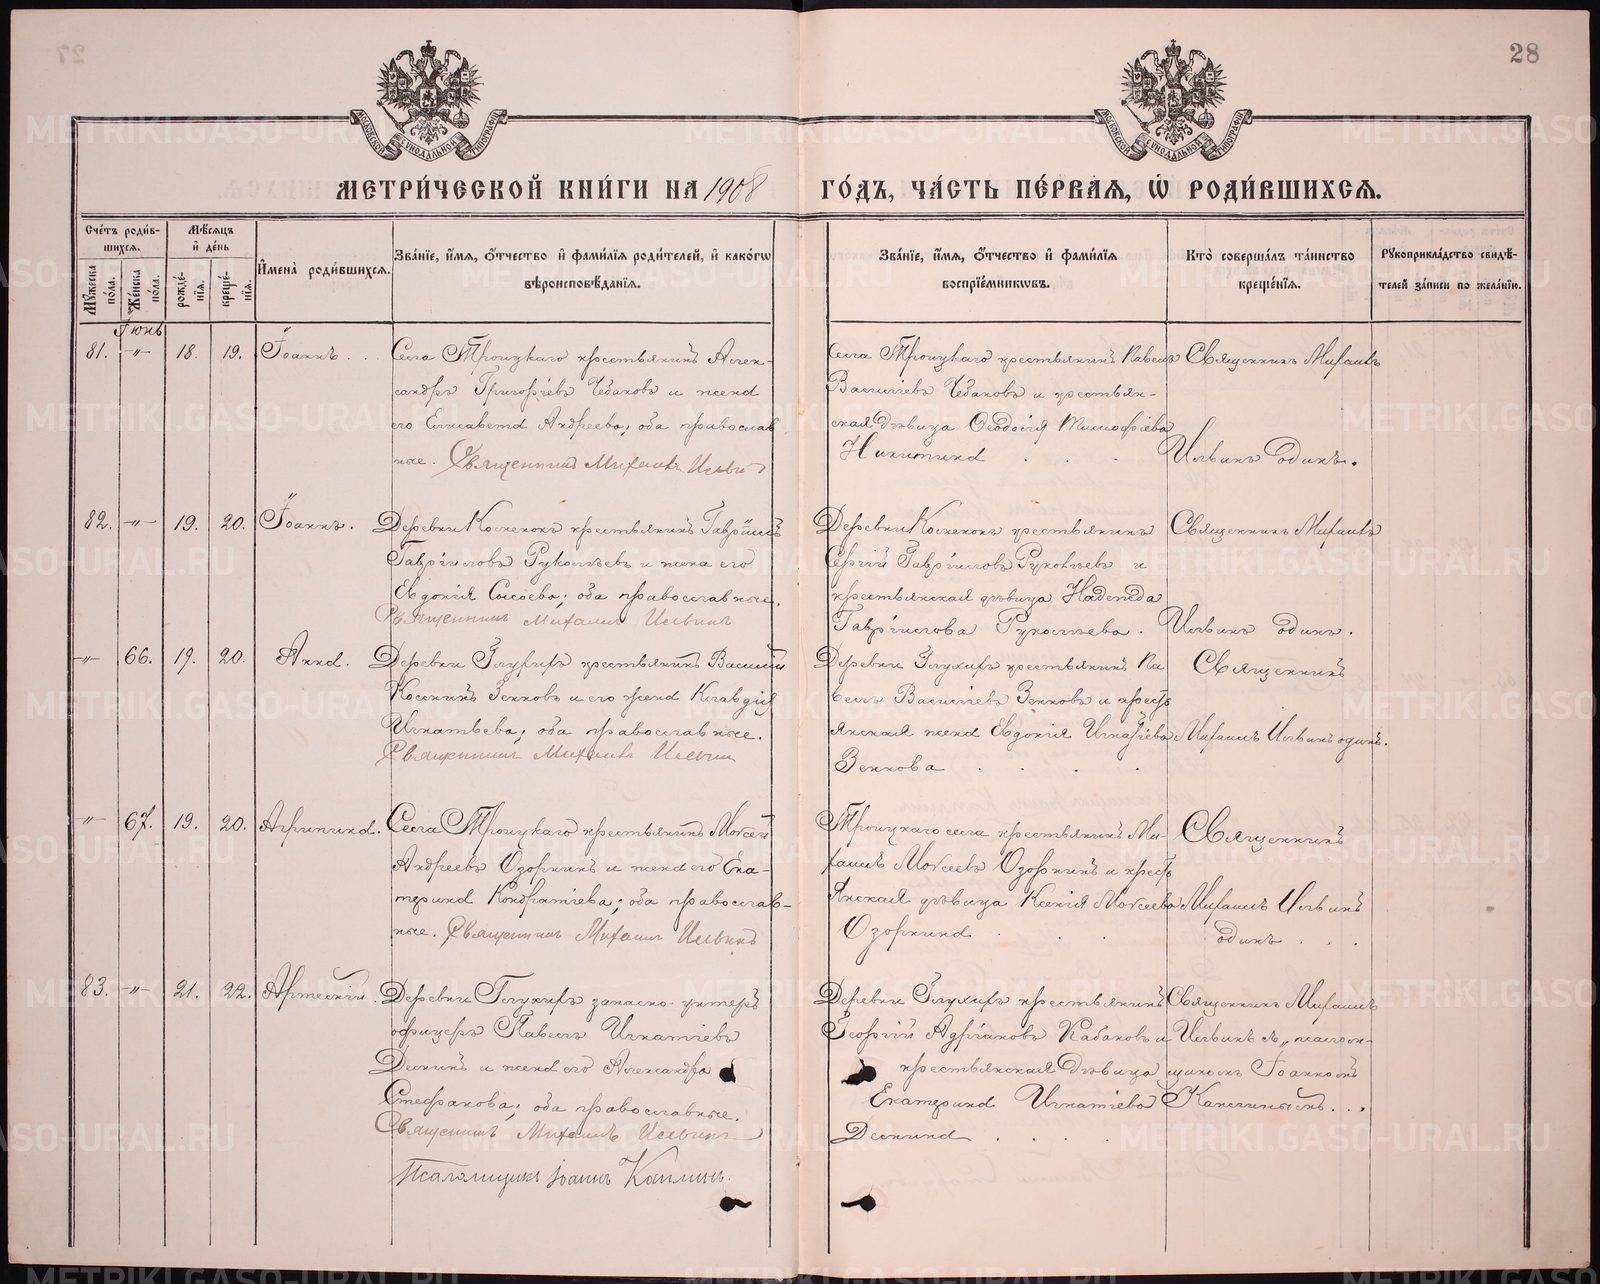 27
28
МОСКОВСКОЙ СѴНОДАЛЬНОЙ ТИПОГРАФІИ
МОСКОВСКОЙ СѴНОДАЛЬНОЙ ТИПОГРАФІИ
МЕТРИ́ЧЕСКОЙ КНИ́ГИ НА 1908 ГО́ДЪ, ЧА́СТЬ ПЕ́РВАЯ, Ѡ РОДИ́ВШИХСЯ.
Сче́тъ роди́в-
шихся.
Мѣ́сяцъ
и҆ де́нь
Мꙋжеска по́ла.
Же́нска по́ла.
рожде́-
нїѧ.
креще́-
нїѧ.
И҆мена̀ роди́вшихся.
Зва́нїе, и҆́мя, ѻ҆́тчество и҆ фами́лїя роди́телей, и҆ како́гѡ
вѣроисповѣ́данїя.
Зва́нїе, и҆́мя, ѻ҆́тчество и҆ фами́лїя
воспрїе́мникѡвъ.
Кто̀ соверша́лъ та́инство
креще́нїя.
Рꙋкоприкла́дство свидѣ́-
телей за́писи по жела́нїю.
Іюнь
81. -"- 18. 19. Іоаннъ.
Села Троицкаго крестьянинъ Алек-
сандръ Григоріевъ Чебаковъ и жена
его Елисавета Андреева; оба православ
ные. Священникъ Михаилъ Ильинъ
Села Троицкаго крестьянинъ Павелъ
Василіевъ Чебаковъ и крестьян-
ская дѣвица Ѳеодосія Тимофѣева
Никитина
Священникъ Михаилъ
Ильинъ одинъ.
82. -"- 19. 20. Іоаннъ.
Деревни крестьянинъ Гавріилъ
Гавріиловъ и жена его
Евдокія Сысоева; оба православные.
Священникъ Михаилъ Ильинъ
Деревни крестьянинъ
Сергій Гавріиловъ и
крестьянская дѣвица Надежда
Гавріилова
Священникъ Михаилъ
Ильинъ одинъ.
-"- 66. 19. 20. Анна.
Деревни Глухихъ крестьянинъ Василій
Зенковъ и его жена Клавдія
Игнатьева; оба православные.
Священникъ Михаилъ Ильинъ
Деревни Глухихъ крестьянинъ Па-
велъ Василіевъ Зенковъ и крестъ
янская жена Евдокія Игнатіева
Зенкова
Священникъ
Михаилъ Ильинъ одинъ.
-"- 67. 19. 20. Агрипина.
Села Троицкаго крестьянинъ Моисей
Андреевъ Озорнинъ и жена его Ека-
терина Кондратіева; оба православ-
ные. Священникъ Михаилъ Ильинъ
Троицкаго села крестьянинъ Ми-
хаилъ Моисеевъ Озорнинъ и крестъ
янская дѣвица Ксенія Моисеева
Озорнина
Священникъ
Михаилъ Ильинъ
одинъ
83. -"- 21. 22. Артемій.
Деревни Глухихъ запасно-унтеръ
офицеръ Павелъ Игнатіевъ
и жена его Александра
Стефанова; оба православные.
Священникъ Михаилъ Ильинъ
Псаломщикъ Іоаннъ Каплинъ.
Деревни Глухихъ крестьянинъ
Георгій Адріановъ Кабаковъ и
крестьянская дѣвица
Екатерина Игнатіева
Священникъ Михаилъ
Ильинъ съ псалом-
щикомъ Іоанномъ
Каплинымъ.
METRIKI.GASO-URAL.RU